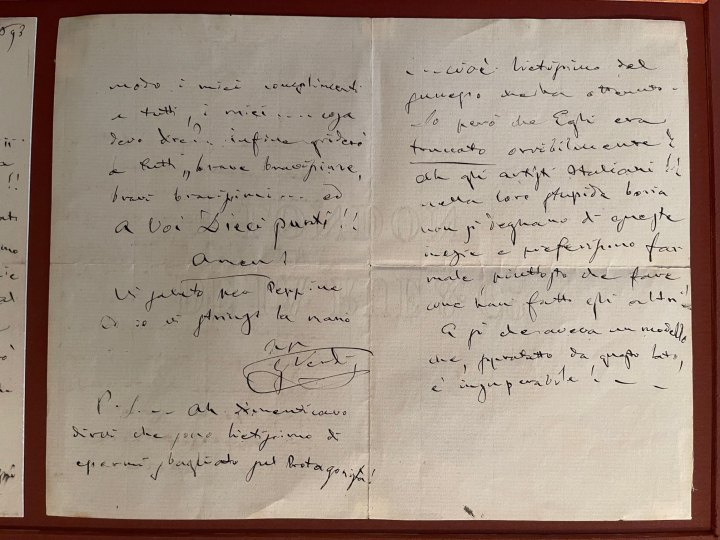 593
!!
modo i miei complimenti
e tutti, i miei .... cosa
devo dire?.. infine griderò
a tutti „brave bravissime,
bravi bravissimi.... ed
a Voi Dieci punti!!
Amen!
Vi saluto per Peppina
Ed io vi stringo la mano
G Verdi
P. S. .. Ah dimenticavo
dirvi che sono lietissimo di
essermi sbagliato sul Protagonista!
.... cioè lietissimo del
successo ottenuto.
So però che Egli era
truccato orribilmente!
Ah gli artisti Italiani!!
nella loro stupida boria
non si degnano di queste
inezie e preferiscono far
male, piuttosto che fare
come han fatto gli altri!
E sì che aveva un modello
che, soprattutto da questo lato,
è insuperabile! _ _